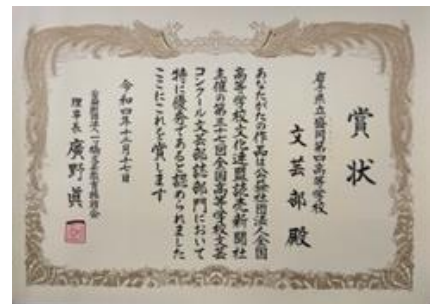 賞状
岩手県立盛岡第四高等学校
文芸部殿
あなたがたの作品は公益社団法人全国
高等学校文化連盟読売新聞社
主催の第三十七回全国高等学校文芸
コンクール文芸部誌部門において
特に優秀であると認められました
ここにこれを賞します
令和四年十二月十七日
公益財団法人一ツ橋文芸教育振興会
理事長 廣野眞一